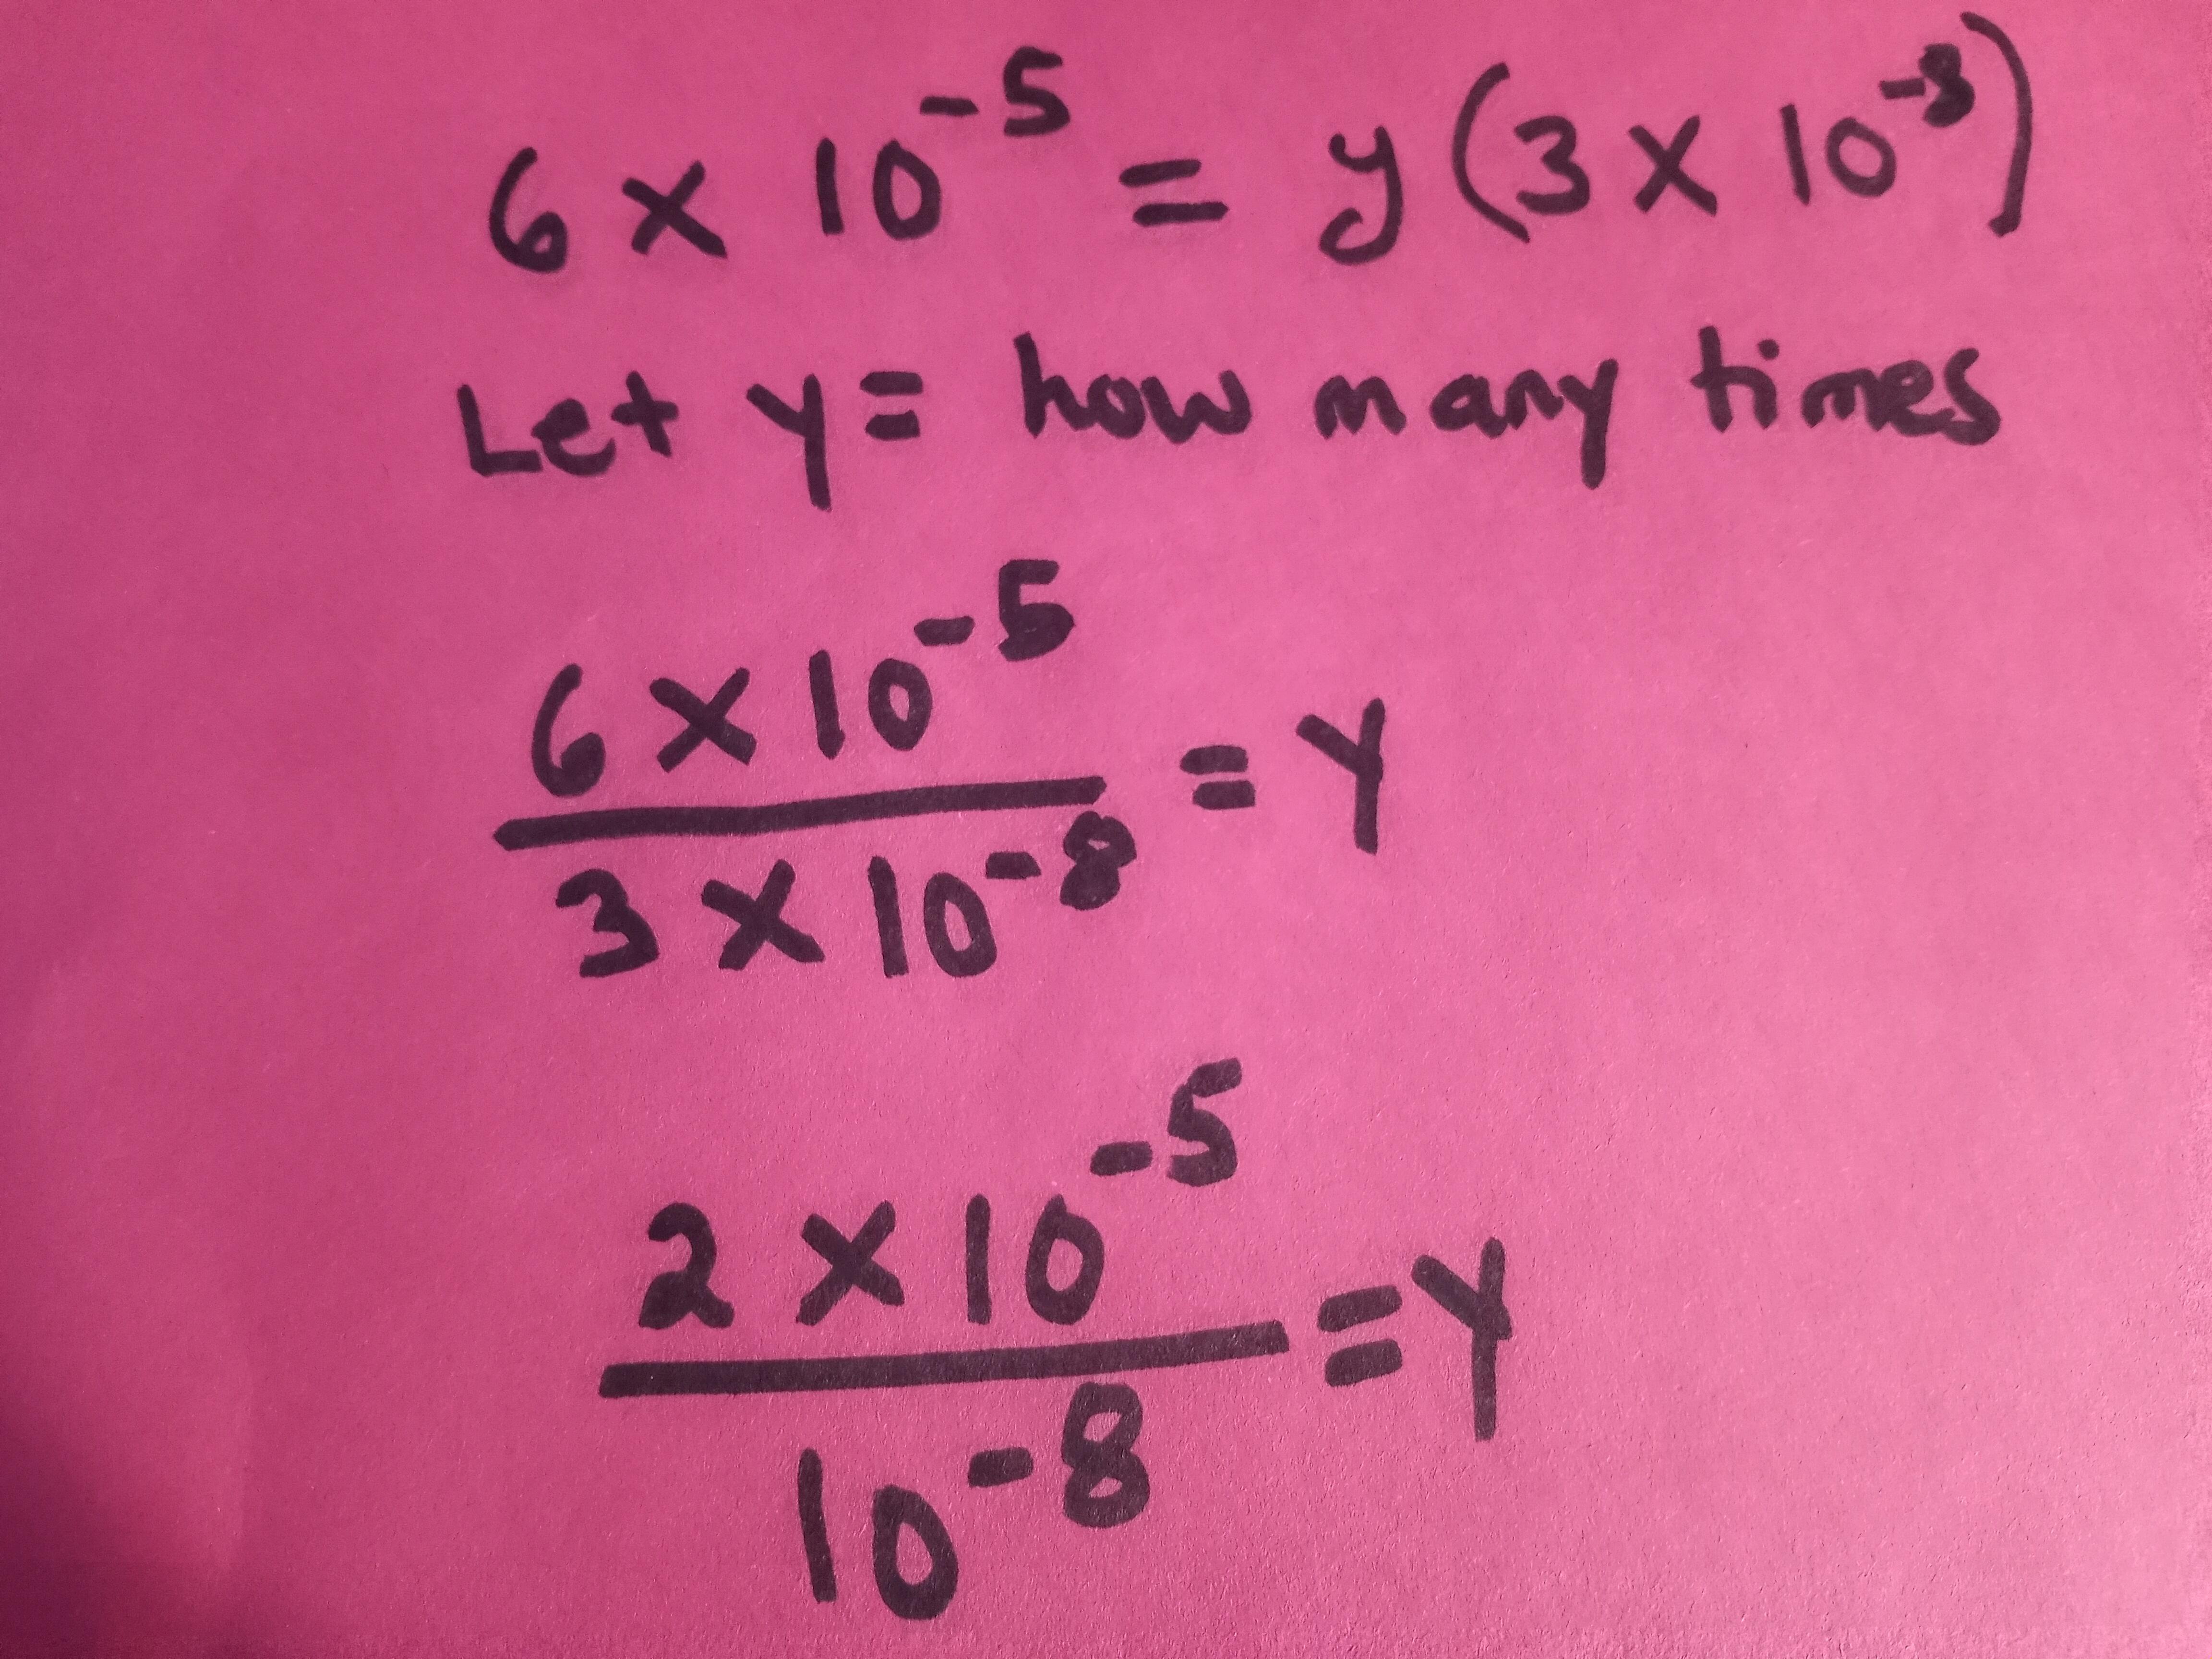 6 x 10^-5 = y (3 x 10^-8)
Let y = how many times
6 x 10^-5
3 x 10^-8 = y
2 x 10^-5
10^-8 = y